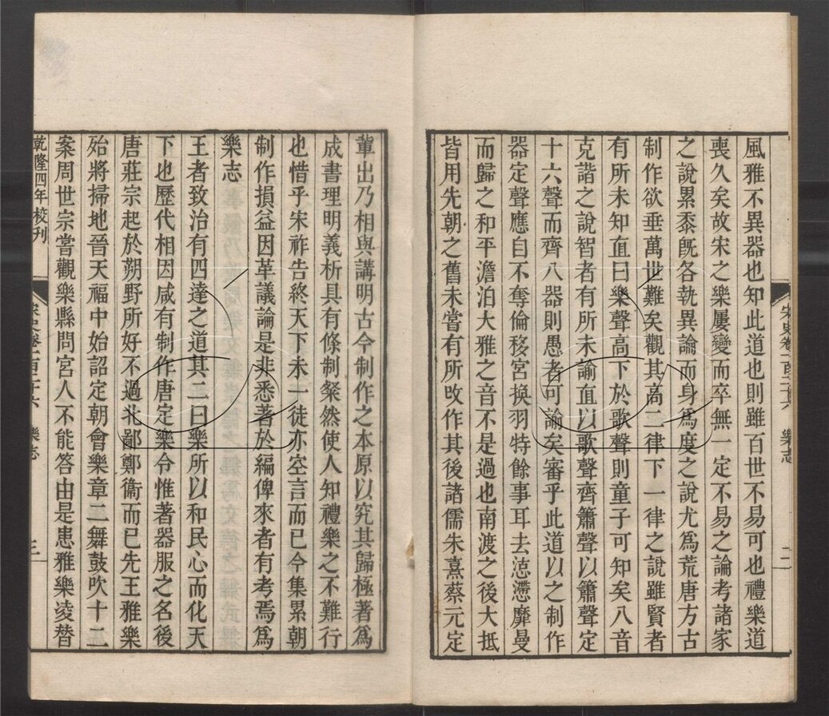 風雅不異器也知此道也則雖百世不易可也禮樂道
喪久矣故宋之樂屢變而卒無一定不易之論考諸家
之說累黍旣各執異論而身爲度之說尤爲荒唐方古
制作欲垂萬世難矣觀其高二律下一律之說雖賢者
有所未知直曰樂聲高下於歌聲則童子可知矣八音
克諧之說智者有所未諭直以歌聲齊簫聲以簫聲定
十六聲而齊八器則愚者可諭矣審乎此道以之制作
器定聲應自不奪倫移宮換羽特餘事耳去惉懘靡曼
而歸之和平澹泊大雅之音不是過也南渡之後大抵
皆用先朝之舊未嘗有所改作其後諸儒朱熹蔡元定
宋史卷一百二十六 樂志 二
輩出乃相與講明古今制作之本原以究其歸極著爲
成書理明義析具有條制粲然使人知禮樂之不難行
也惜乎宋祚告終天下未一徒亦空言而已今集累朝
制作損益因革議論是非悉著於編俾來者有考焉爲
樂志
王者致治有四達之道其二曰樂所以和民心而化天
下也歷代相因咸有制作唐定樂令惟著器服之名後
唐莊宗起於朔野所好不過北鄙鄭衞而已先王雅樂
殆將掃地晉天福中始詔定朝會樂章二舞鼓吹十二
案周世宗嘗觀樂縣問宮人不能答由是患雅樂凌替
乾隆四年校刊
宋史卷一百二十六 樂志 三